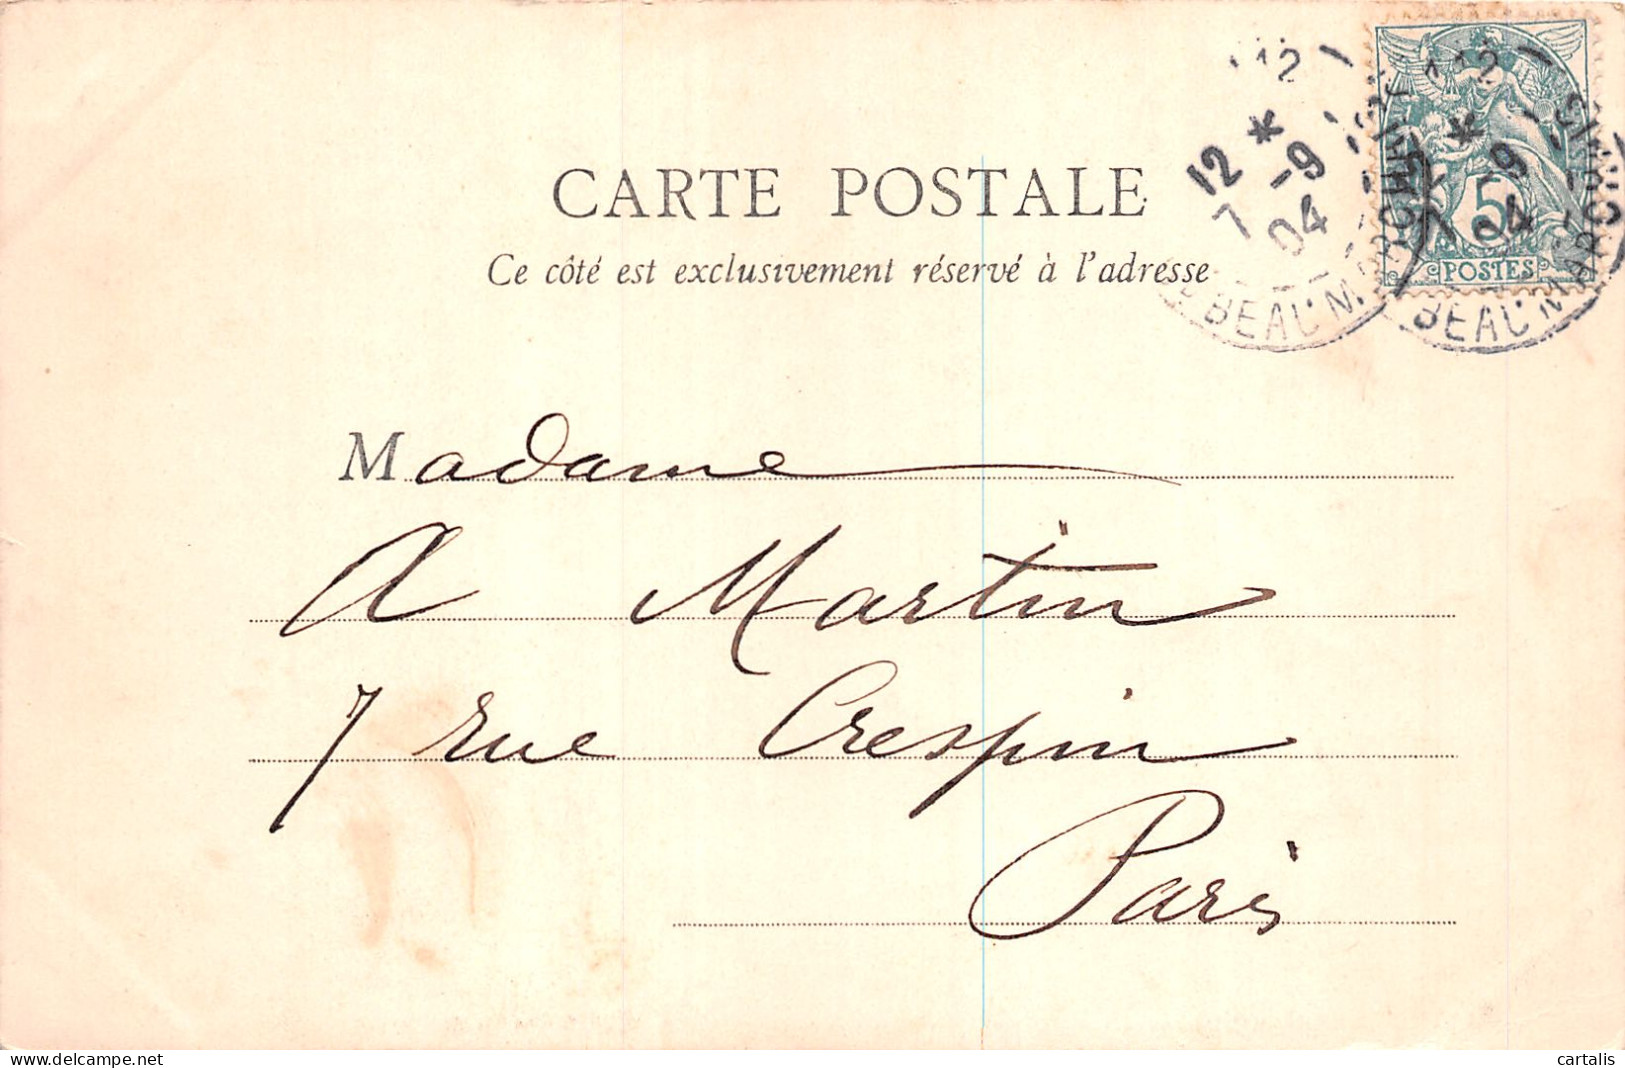 CARTE POSTALE
Ce côté est exclusivement réservé à l'adresse
12 *
7 -9
04
BEAUM
12 *
7 -9
04
BEAUMARCHAIS
5
POSTES
Madame
A Martin
7 rue Crespin
Paris
delcampe.net
cartalis